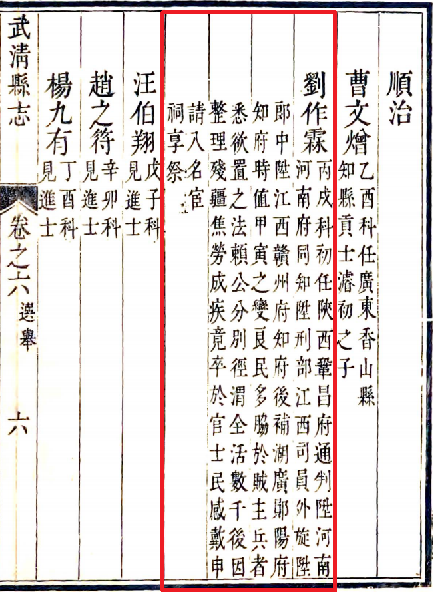 順治
曹文熷
乙酉科任廣東香山縣
知縣貢士濬初之子
劉作霖
丙戌科初任陝西鞏昌府通判陞河南
河南府同知陞刑部江西司員外旋陞
郎中陞江西贛州府知府後補湖廣鄖陽府
知府時值甲寅之變良民多脇於賊主兵者
悉欲置之法賴公分別徑渭全活數千後因
整理殘疆焦勞成疾竟卒於官士民感戴申
請入名宦
祠享祭
汪伯翔
戊子科
見進士
趙之符
辛卯科
見進士
楊九有
丁酉科
見進士
武清縣志
卷之六
選舉
六